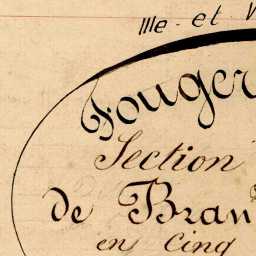 Ille - et - V
Fouger
Section
de Bran
en Cinq